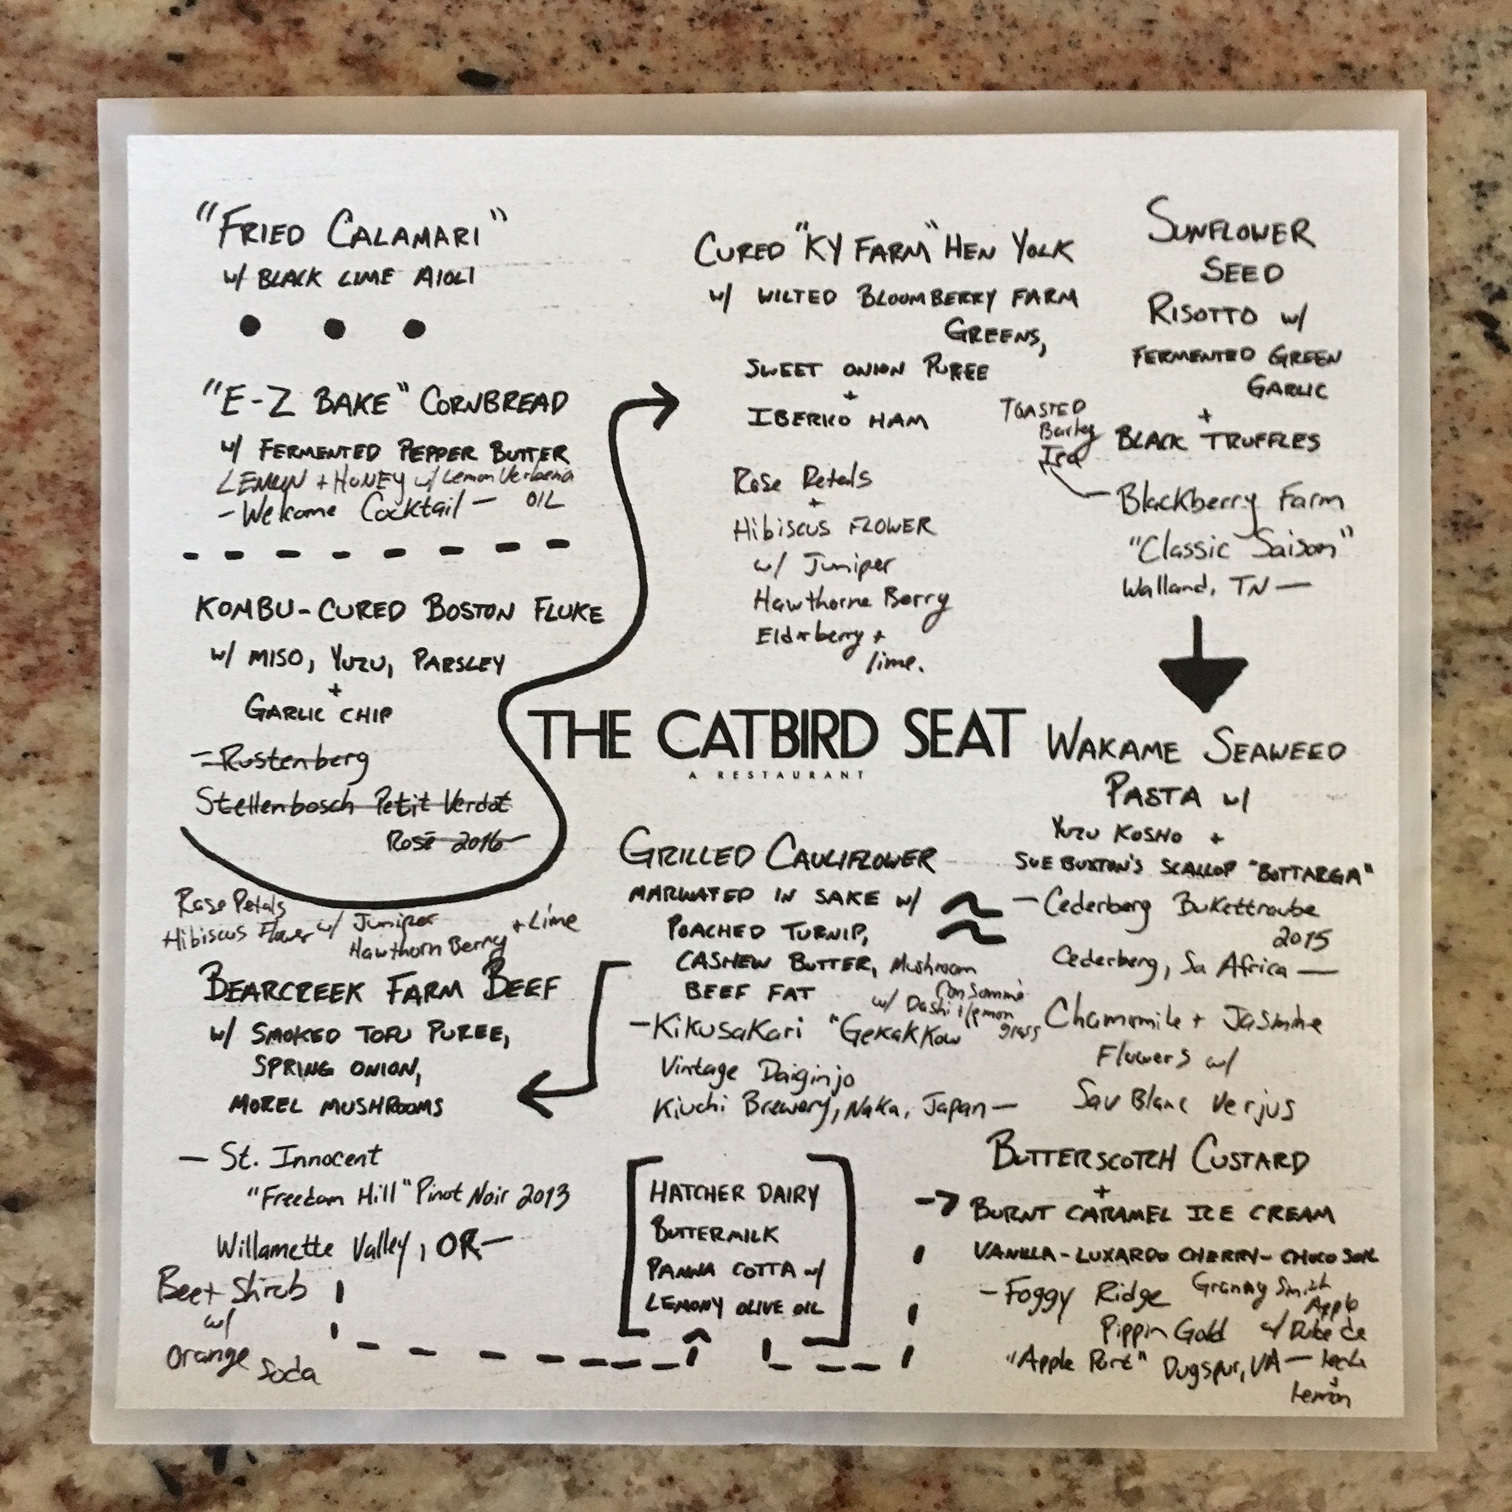 "FRIED CALAMARI"
w/ BLACK LIME AIOLI
"E-Z BAKE" CORNBREAD
w/ FERMENTED PEPPER BUTTER
LEMON + HONEY w/ Lemon Verbena
OIL
- Welcome Cocktail -
KOMBU-CURED BOSTON FLUKE
w/ MISO, YUZU, PARSLEY
+
GARLIC CHIP
- Rustenberg
Stellenbosch Petit Verdot
Rosé 2016 -
Rose Petals
Hibiscus Flower w/ Juniper
Hawthorn Berry
+ Lime
CURED "KY FARM" HEN YOLK
w/ WILTED BLOOMBERRY FARM
GREENS,
SWEET ONION PUREE
+
IBERKO HAM
Rose Petals
+
Hibiscus FLOWER
w/ Juniper
Hawthorne Berry
Elderberry +
lime.
SUNFLOWER
SEED
RISOTTO w/
FERMENTED GREEN
GARLIC
+
BLACK TRUFFLES
TOASTED
Barley
Blackberry Farm
"Classic Saison"
Walland, TN -
THE CATBIRD SEAT
A RESTAURANT
WAKAME SEAWEED
PASTA w/
YUZU KOSHO +
SUE BUXTON'S SCALLOP "BOTTARGA"
- Cederberg Bukettraube
2015
Cederberg, So Africa -
Chamomile + Jasmine
Flowers w/
Sauv Blanc Verjus
GRILLED CAULIFLOWER
MARINATED IN SAKE w/
POACHED TURNIP,
CASHEW BUTTER,
BEEF FAT
Mushroom
Consommé
w/ Dashi + lemon
grass
- Kikusakari "Gekakkow"
Vintage Daiginjo
Kiuchi Brewery, Naka, Japan -
BEARCREEK FARM BEEF
w/ SMOKED TOFU PUREE,
SPRING ONION,
MOREL MUSHROOMS
- St. Innocent
"Freedom Hill" Pinot Noir 2013
Willamette Valley, OR -
Beet Shrub
w/
Orange
Soda
HATCHER DAIRY
BUTTERMILK
PANNA COTTA w/
LEMONY OLIVE OIL
BUTTERSCOTCH CUSTARD
+
BURNT CARAMEL ICE CREAM
VANILLA-LUXARDO CHERRY-CHOCO SOIL
- Foggy Ridge
Pippin Gold
"Apple Port" Dugspur, VA -
Granny Smith
Apple
w/ Dulce de
leche
+
lemon